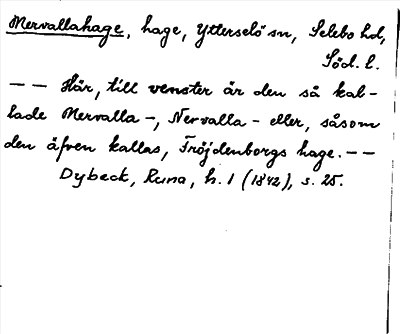 Mervallahage, hage, Ytterselö sn, Selebo hd,
Söd. l.
-- Här, till venster är den så kal-
lade Mervalla-, Nervalla- eller, såsom
den äfven kallas, Fröjdenborgs hage. --
Dybeck, Runa, h. 1 (1842), s. 25.